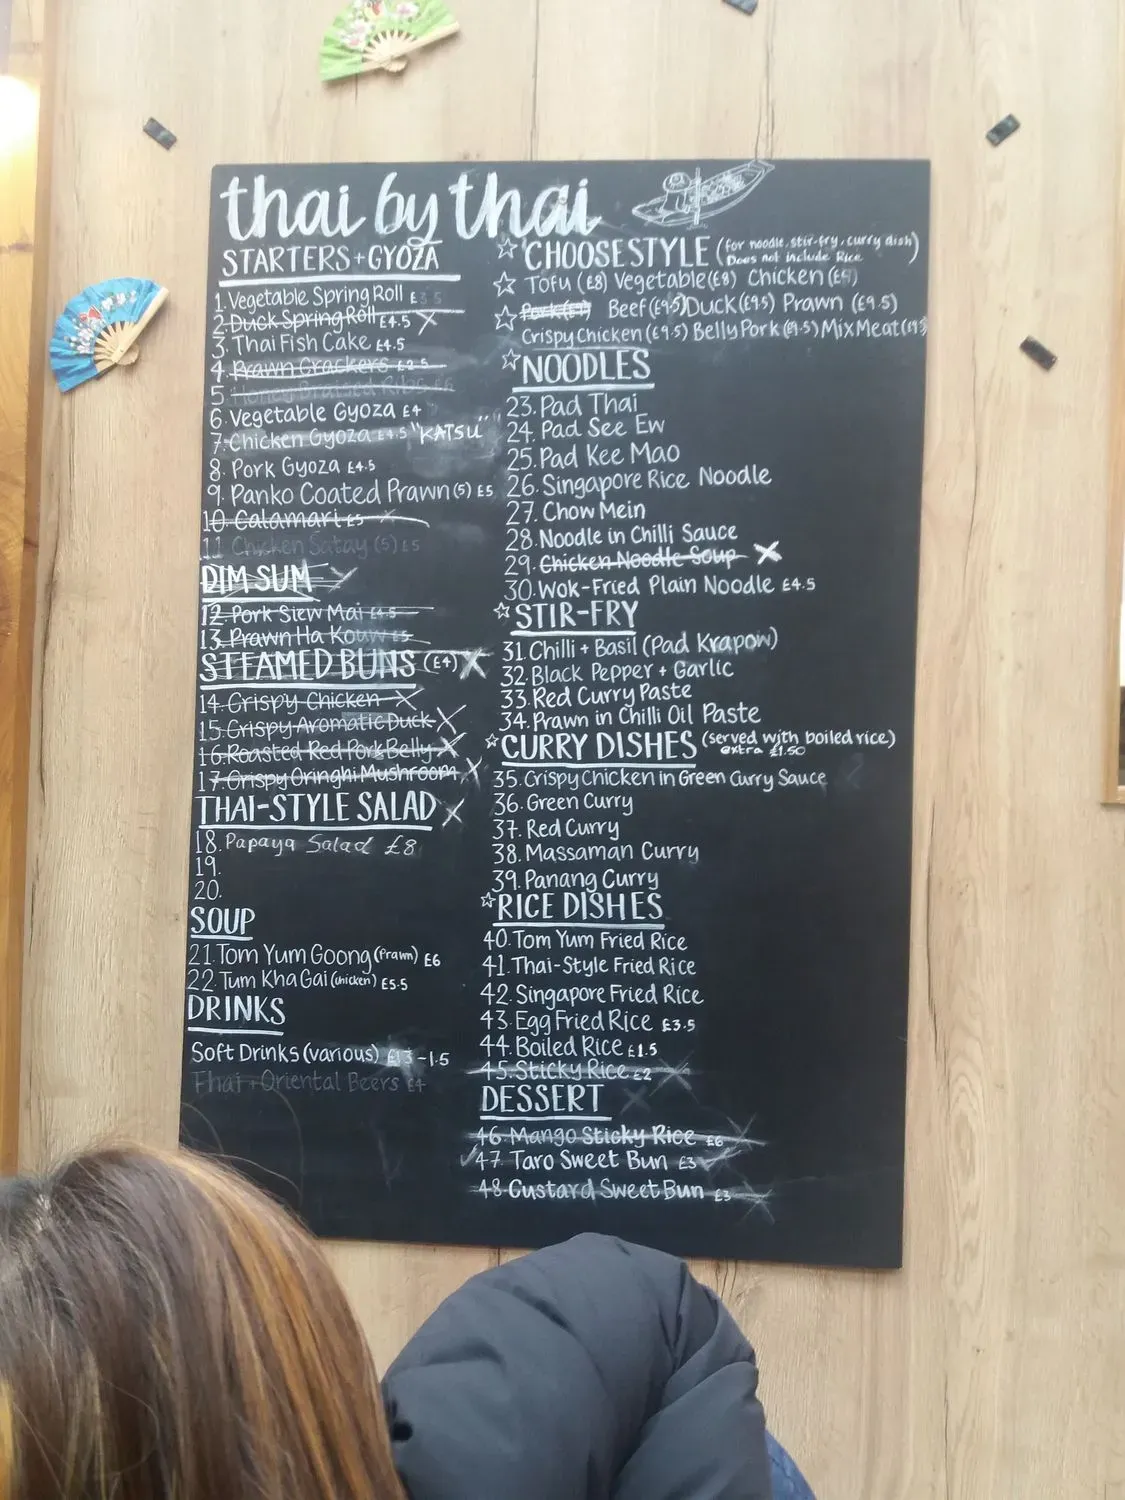 thai by thai
STARTERS + GYOZA
1. Vegetable Spring Roll £3.5
2. Duck Spring Roll £4.5 X
3. Thai Fish Cake £4.5
4. Prawn Crackers £2.5
5. Honey Braised Ribs £6
6. Vegetable Gyoza £4
7. Chicken Gyoza £4.5 "KATSU"
8. Pork Gyoza £4.5
9. Panko Coated Prawn (5) £5
10. Calamari £5
11. Chicken Satay (5) £5
DIM SUM
12. Pork Siew Mai £4.5
13. Prawn Ha Kouw £5
STEAMED BUNS (£4) X
14. Crispy Chicken X
15. Crispy Aromatic Duck X
16. Roasted Red Pork Belly X
17. Crispy Oringhi Mushroom X
THAI-STYLE SALAD X
18. Papaya Salad £8
19.
20.
SOUP
21. Tom Yum Goong (Prawn) £6
22. Tum Kha Gai (chicken) £5.5
DRINKS
Soft Drinks (various) -1.5
Thai + Oriental Beers £4
CHOOSE STYLE (for noodle, stir-fry, curry dish)
Does not include Rice
Tofu (£8) Vegetable (£8) Chicken
Pork Beef (£9.5) Duck (£9.5) Prawn (£9.5)
Crispy Chicken (£9.5) Belly Pork (£9.5) Mix Meat
NOODLES
23. Pad Thai
24. Pad See Ew
25. Pad Kee Mao
26. Singapore Rice Noodle
27. Chow Mein
28. Noodle in Chilli Sauce
29. Chicken Noodle Soup X
30. Wok-Fried Plain Noodle £4.5
STIR-FRY
31. Chilli + Basil (Pad Krapow)
32. Black Pepper + Garlic
33. Red Curry Paste
34. Prawn in Chilli Oil Paste
CURRY DISHES (served with boiled rice)
extra £1.50
35. Crispy Chicken in Green Curry Sauce
36. Green Curry
37. Red Curry
38. Massaman Curry
39. Panang Curry
RICE DISHES
40. Tom Yum Fried Rice
41. Thai-Style Fried Rice
42. Singapore Fried Rice
43. Egg Fried Rice £3.5
44. Boiled Rice £1.5
45. Sticky Rice £2
DESSERT
46. Mango Sticky Rice £6
47. Taro Sweet Bun £3
48. Custard Sweet Bun £3